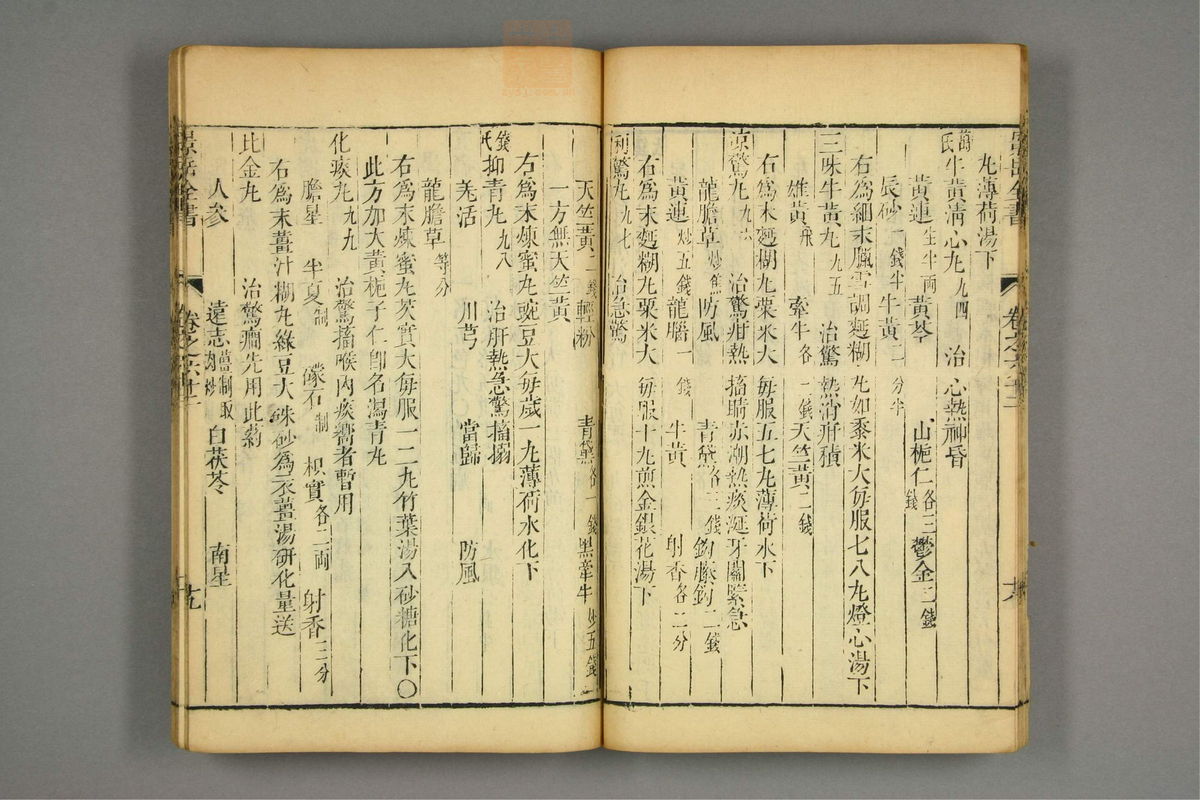 丸薄荷湯下
萬氏牛黃清心丸九四　治心熱神昏
黃連生半兩　黃芩　山梔仁各三錢　鬱金二錢
辰砂一錢半　牛黃二分半
右為細末臘雪調麪糊丸如黍米大每服七八丸燈心湯下
三味牛黃丸九五　治驚熱消疳積
雄黃飛　牽牛各一錢　天竺黃二錢
右為末麪糊丸粟米大每服五七丸薄荷水下
涼驚丸九六　治驚疳熱搐睛赤潮熱痰涎牙關緊急
龍膽草炒焦　防風　青黛各三錢　鈎藤鈎二錢
黃連炒五錢　龍腦一錢　牛黃　射香各二分
右為末麪糊丸粟米大每服十丸煎金銀花湯下
利驚丸九七　治急驚
天竺黃二錢　輕粉　青黛各一錢　黑牽牛炒五錢
一方無天竺黃
右為末煉蜜丸豌豆大每歲一丸薄荷水化下
錢氏抑青丸九八　治肝熱急驚搐搦
羌活　川芎　當歸　防風
龍膽草等分
右為末煉蜜丸芡實大每服一二丸竹葉湯入砂糖化下〇
此方加大黃梔子仁卽名瀉青丸
化痰丸九九　治驚搐喉內痰嚮者暫用
膽星　半夏制　礞石制　枳實各二兩　射香二分
右為末薑汁糊丸綠豆大硃砂為衣薑湯研化量送
比金丸　治驚癎先用此藥
人參　遠志薑制取肉炒　白茯苓　南星
景岳全書　卷之六十二　十九